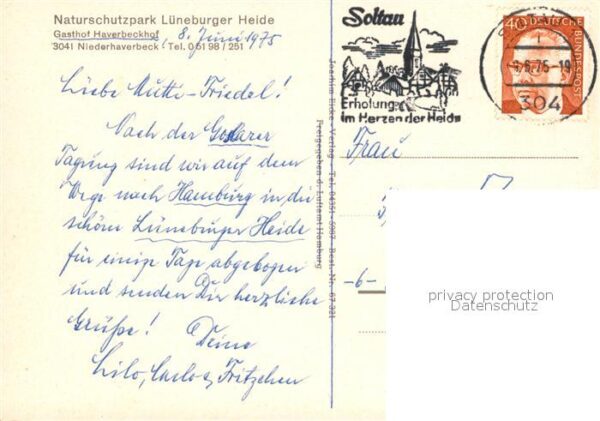 Naturschutzpark Lüneburger Heide
Gasthof Haverbeckhof
3041 Niederhaverbeck / Tel. 0 51 98 / 251
8. Juni 1975
Liebe Mutti-Friedel!
Nach der Goslarer
Tagung sind wir auf dem
Wege nach Hamburg in die
schöne Lüneburger Heide
für einige Tage abgebogen
und senden Dir herzliche
Grüße! Deine
Lilo, Carlos, Fritzchen
Joachim Eicke - Verlag - Tel. 04351-5987 Best. Nr. 67.321
Freigegeben d. Luftamt Hamburg
Soltau
Erholung
im Herzen der Heide
40 DEUTSCHE BUNDESPOST
304
Frau
-6-
privacy protection
Datenschutz